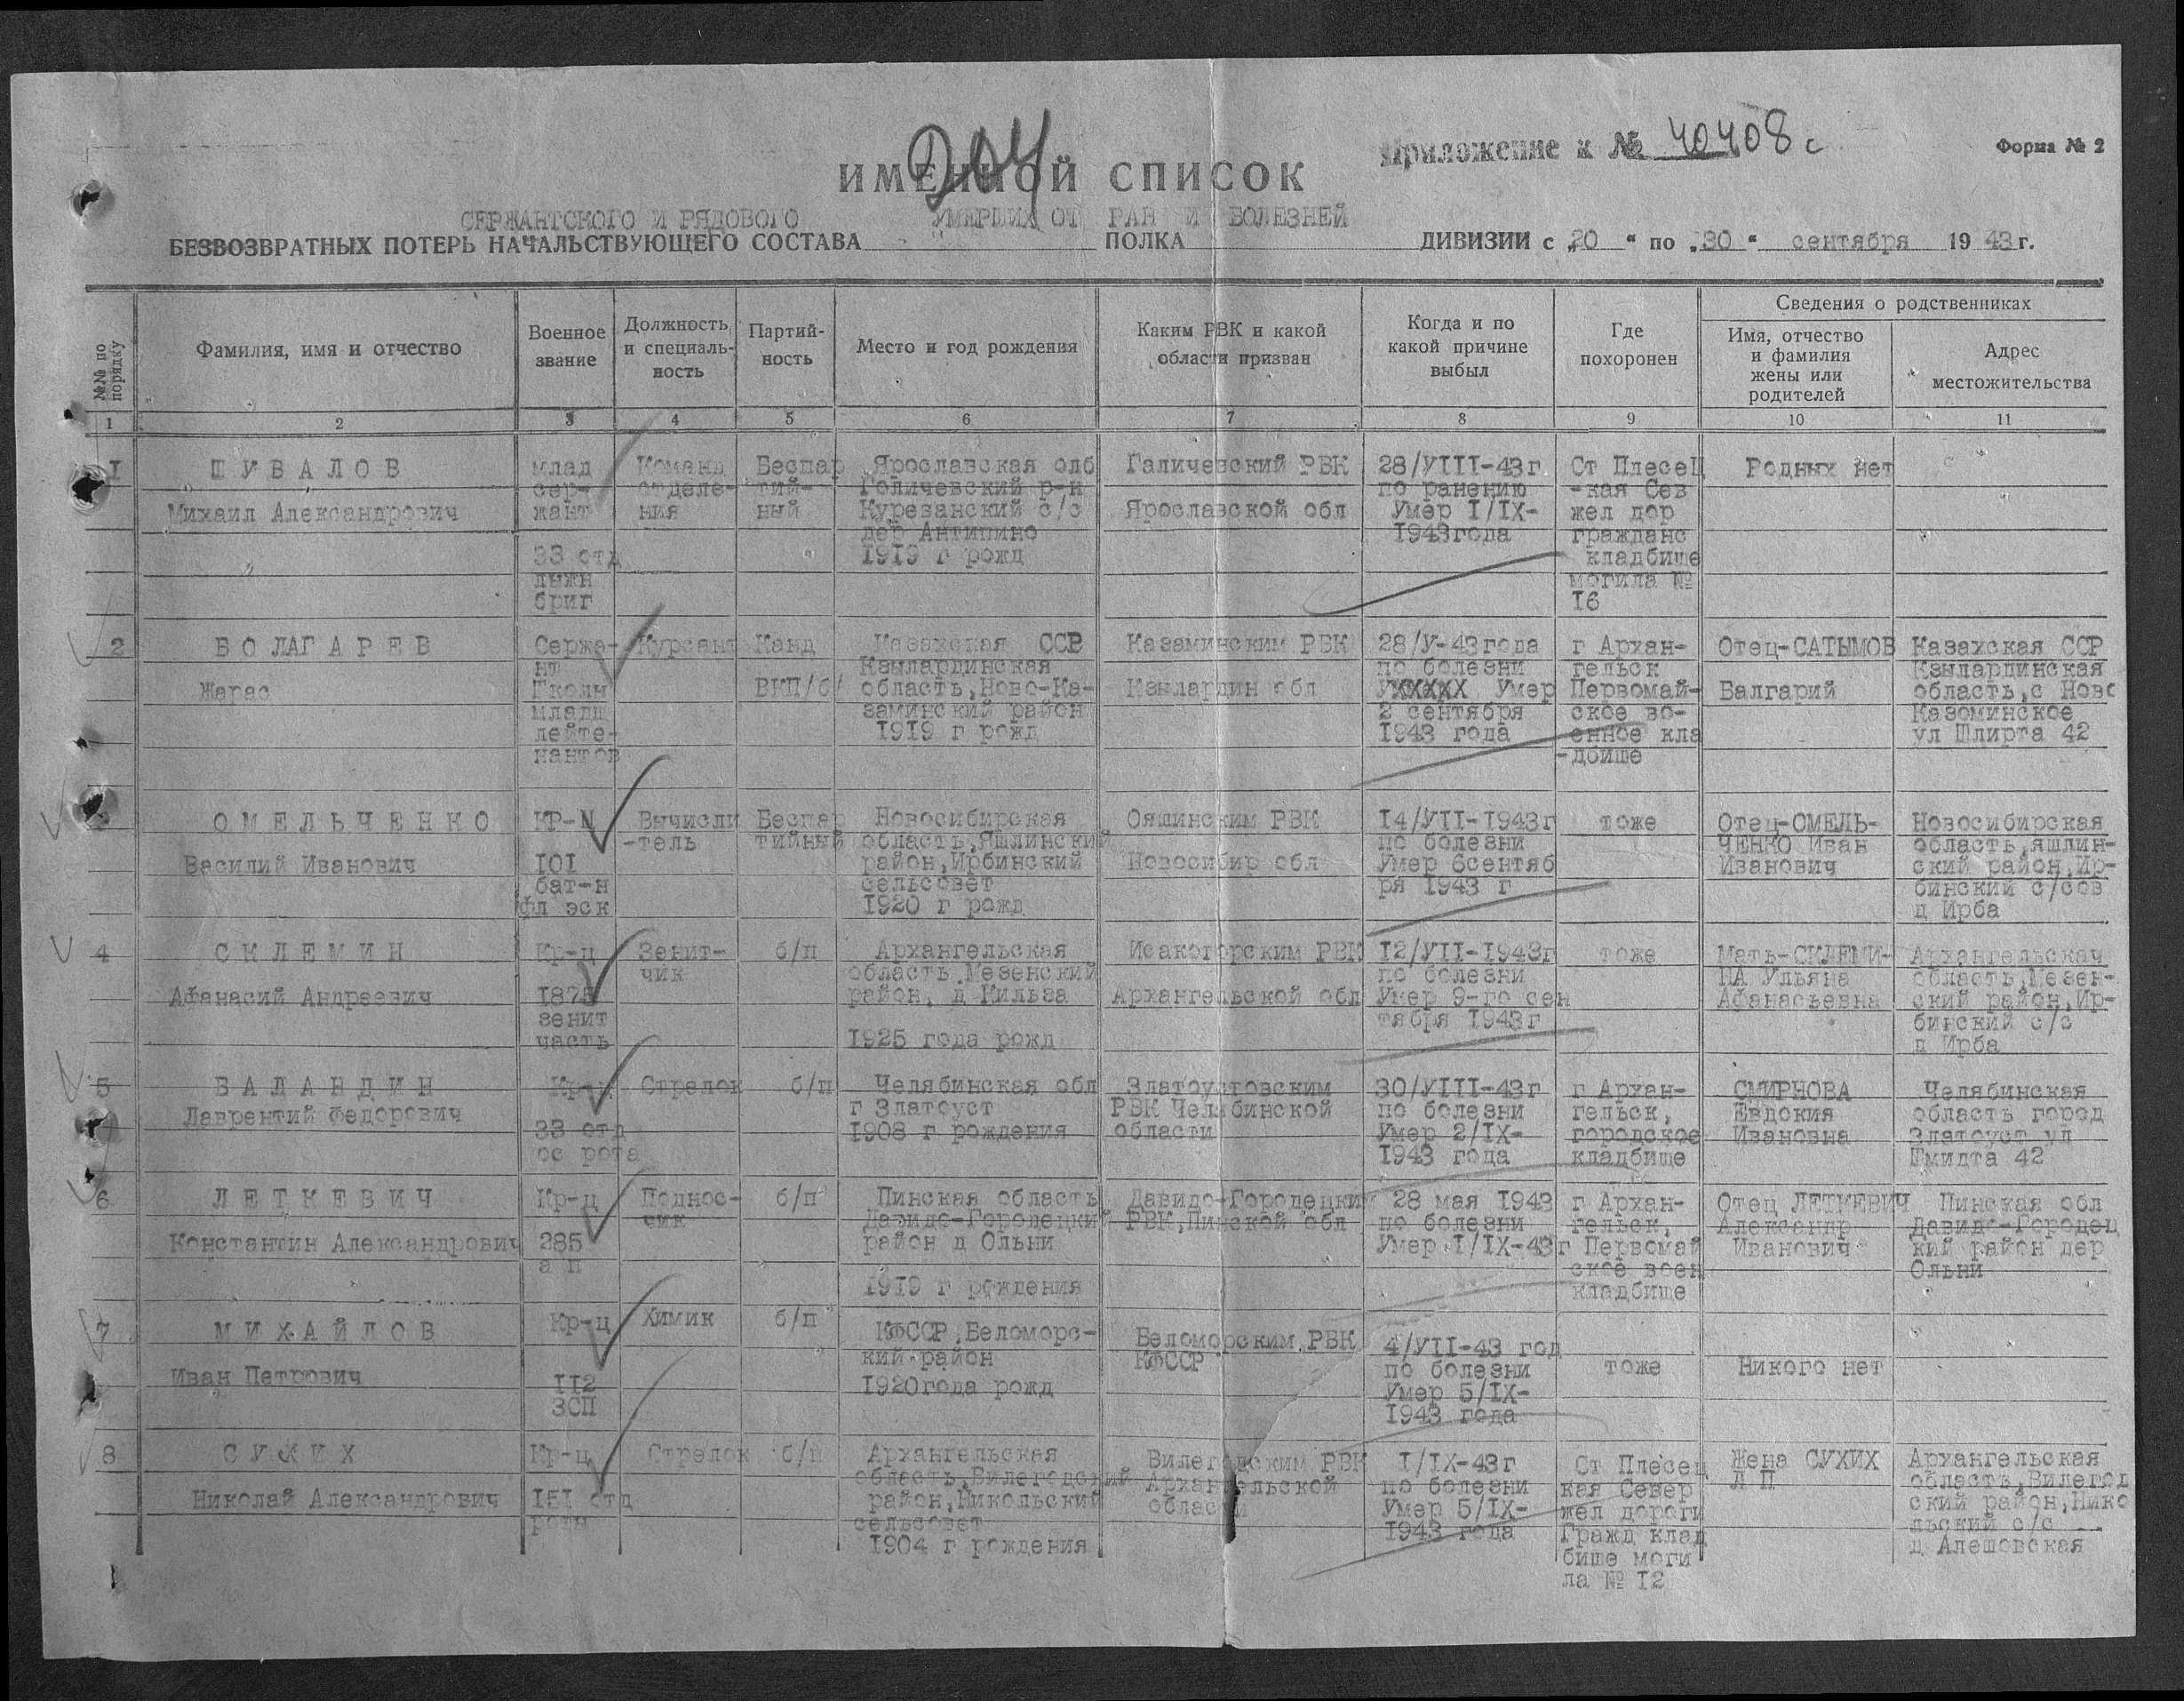 204
Приложение к № 40408с
Форма № 2
ИМЕННОЙ СПИСОК
СЕРЖАНТСКОГО И РЯДОВОГО УМЕРШИХ ОТ РАН И БОЛЕЗНЕЙ
БЕЗВОЗВРАТНЫХ ПОТЕРЬ НАЧАЛЬСТВУЮЩЕГО СОСТАВА ПОЛКА ДИВИЗИИ с „20 “ по „30 “ сентября 1943 г.
№№ по порядку
Фамилия, имя и отчество
Военное
звание
Должность
и специаль-
ность
Партий-
ность
Место и год рождения
Каким РВК и какой
области призван
Когда и по
какой причине
выбыл
Где
похоронен
Сведения о родственниках
Имя, отчество
и фамилия
жены или
родителей
Адрес
местожительства
1 2 3 4 5 6 7 8 9 10 11
I
ШУВАЛОВ
Михаил Александрович
млад
сер-
жант
33 отд
лыжн
бриг
Команд
отделе-
ния
Беспар
тий-
ный
Ярославская олб
Голичевский р-н
Курезанский с/с
дер Антипино
1919 г рожд
Галичевский РВК
Ярославской обл
28/УIII-43г
по ранению
Умер I/IX-
1943года
Ст Плесец
-кая Сев
жел дор
гражданс
кладбище
могила №
I6
Родных нет
2
БОЛАГАРЕВ
Жарас
Сержа-
нт
Школы
младш
лейте-
нантов
Курсант
Канд
ВКП/б/
Казахская ССР
Кзылардинская
область,Ново-Ка-
заминский район
1919 г рожд
Казаминским РВК
Кзылардин обл
28/У-43года
по болезни
УХХХХХ Умер
2 сентября
1943 года
г Архан-
гельск
Первомай-
ское во-
енное кла
-дбише
Отец-САТЫМОВ
Балгарий
Казахская ССР
Кзылардинская
область,с Ново
Казоминское
ул Шлирта 42
ОМЕЛЬЧЕНКО
Василий Иванович
КР-Ц
I0I
бат-н
фл эск
Вычисли
-тель
Беспар
тийный
Новосибирская
область,Яшлинский
район,Ирбинский
сельсовет
1920 г рожд
Ояшинским РВК
Новосибир обл
I4/УII-1943г
по болезни
Умер 6сентяб
ря 1943 г
тоже
Отец-ОМЕЛЬ-
ЧЕНКО Иван
Иванович
Новосибирская
область,яшлин-
ский район,Ир-
бинский с/сов
д Ирба
4
СКЛЕМИН
Афанасий Андреевич
Кр-ц
1875
зенит
часть
Зенит-
чик
б/п
Архангельская
область Мезенский
район, д Кильза
1925 года рожд
Исакогорским РВК
Архангельской обл
I2/УII-1943г
по болезни
Умер 9-го сен
тября 1943г
тоже
Мать-СКЛЕМИ-
НА Ульяна
Афанасьевна
Архангельская
область,Мезен-
ский район,Ир-
бинский с/с
д Ирба
5
БАЛАНДИН
Лаврентий Федорович
Кр-ц
33 отд
сс рота
Стрелок
б/п
Челябинская обл
г Златоуст
1908 г рождения
Златоустовским
РВК Челябинской
области
30/УIII-43г
по болезни
Умер 2/IX-
1943 года
г Архан-
гельск,
городское
кладбище
СМИРНОВА
Евдокия
Ивановна
Челябинская
область город
Златоуст ул
Шмидта 42
6
ЛЕТКЕВИЧ
Константин Александрович
Кр-ц
285
а п
Поднос-
чик
б/п
Пинская область
Давидо-Городецкий
район д Ольни
1919 г рождения
Давидо-Городецким
РВК,Пинской обл
28 мая 1943
по болезни
Умер I/IX-43г
г Архан-
гельск,
Первомай
ское воен
кладбище
Отец ЛЕТКЕВИЧ
Александр
Иванович
Пинская обл
Давидо-Городец
кий район дер
Ольни
7
МИХАЙЛОВ
Иван Петрович
Кр-ц
II2
ЗСП
Химик
б/п
КФССР,Беломорс-
кий район
1920года рожд
Беломорским РВК
КФССР
4/УII-43 год
по болезни
Умер 5/IX-
1943 года
тоже
Никого нет
8
СУХИХ
Николай Александрович
Кр-ц
I5I отд
роты
Стрелок
б/п
Архангельская
область,Вилегодский
район,Никольский
сельсовет
1904 г рождения
Вилегодским РВК
Архангельской
области
I/IX-43г
по болезни
Умер 5/IX-
1943 года
Ст Плесец
кая Север
жел дороги
Гражд клад
бише моги
ла № I2
Жена СУХИХ
Л П
Архангельская
область,Вилегод
ский район,Нико
льский с/с
д Алешовская